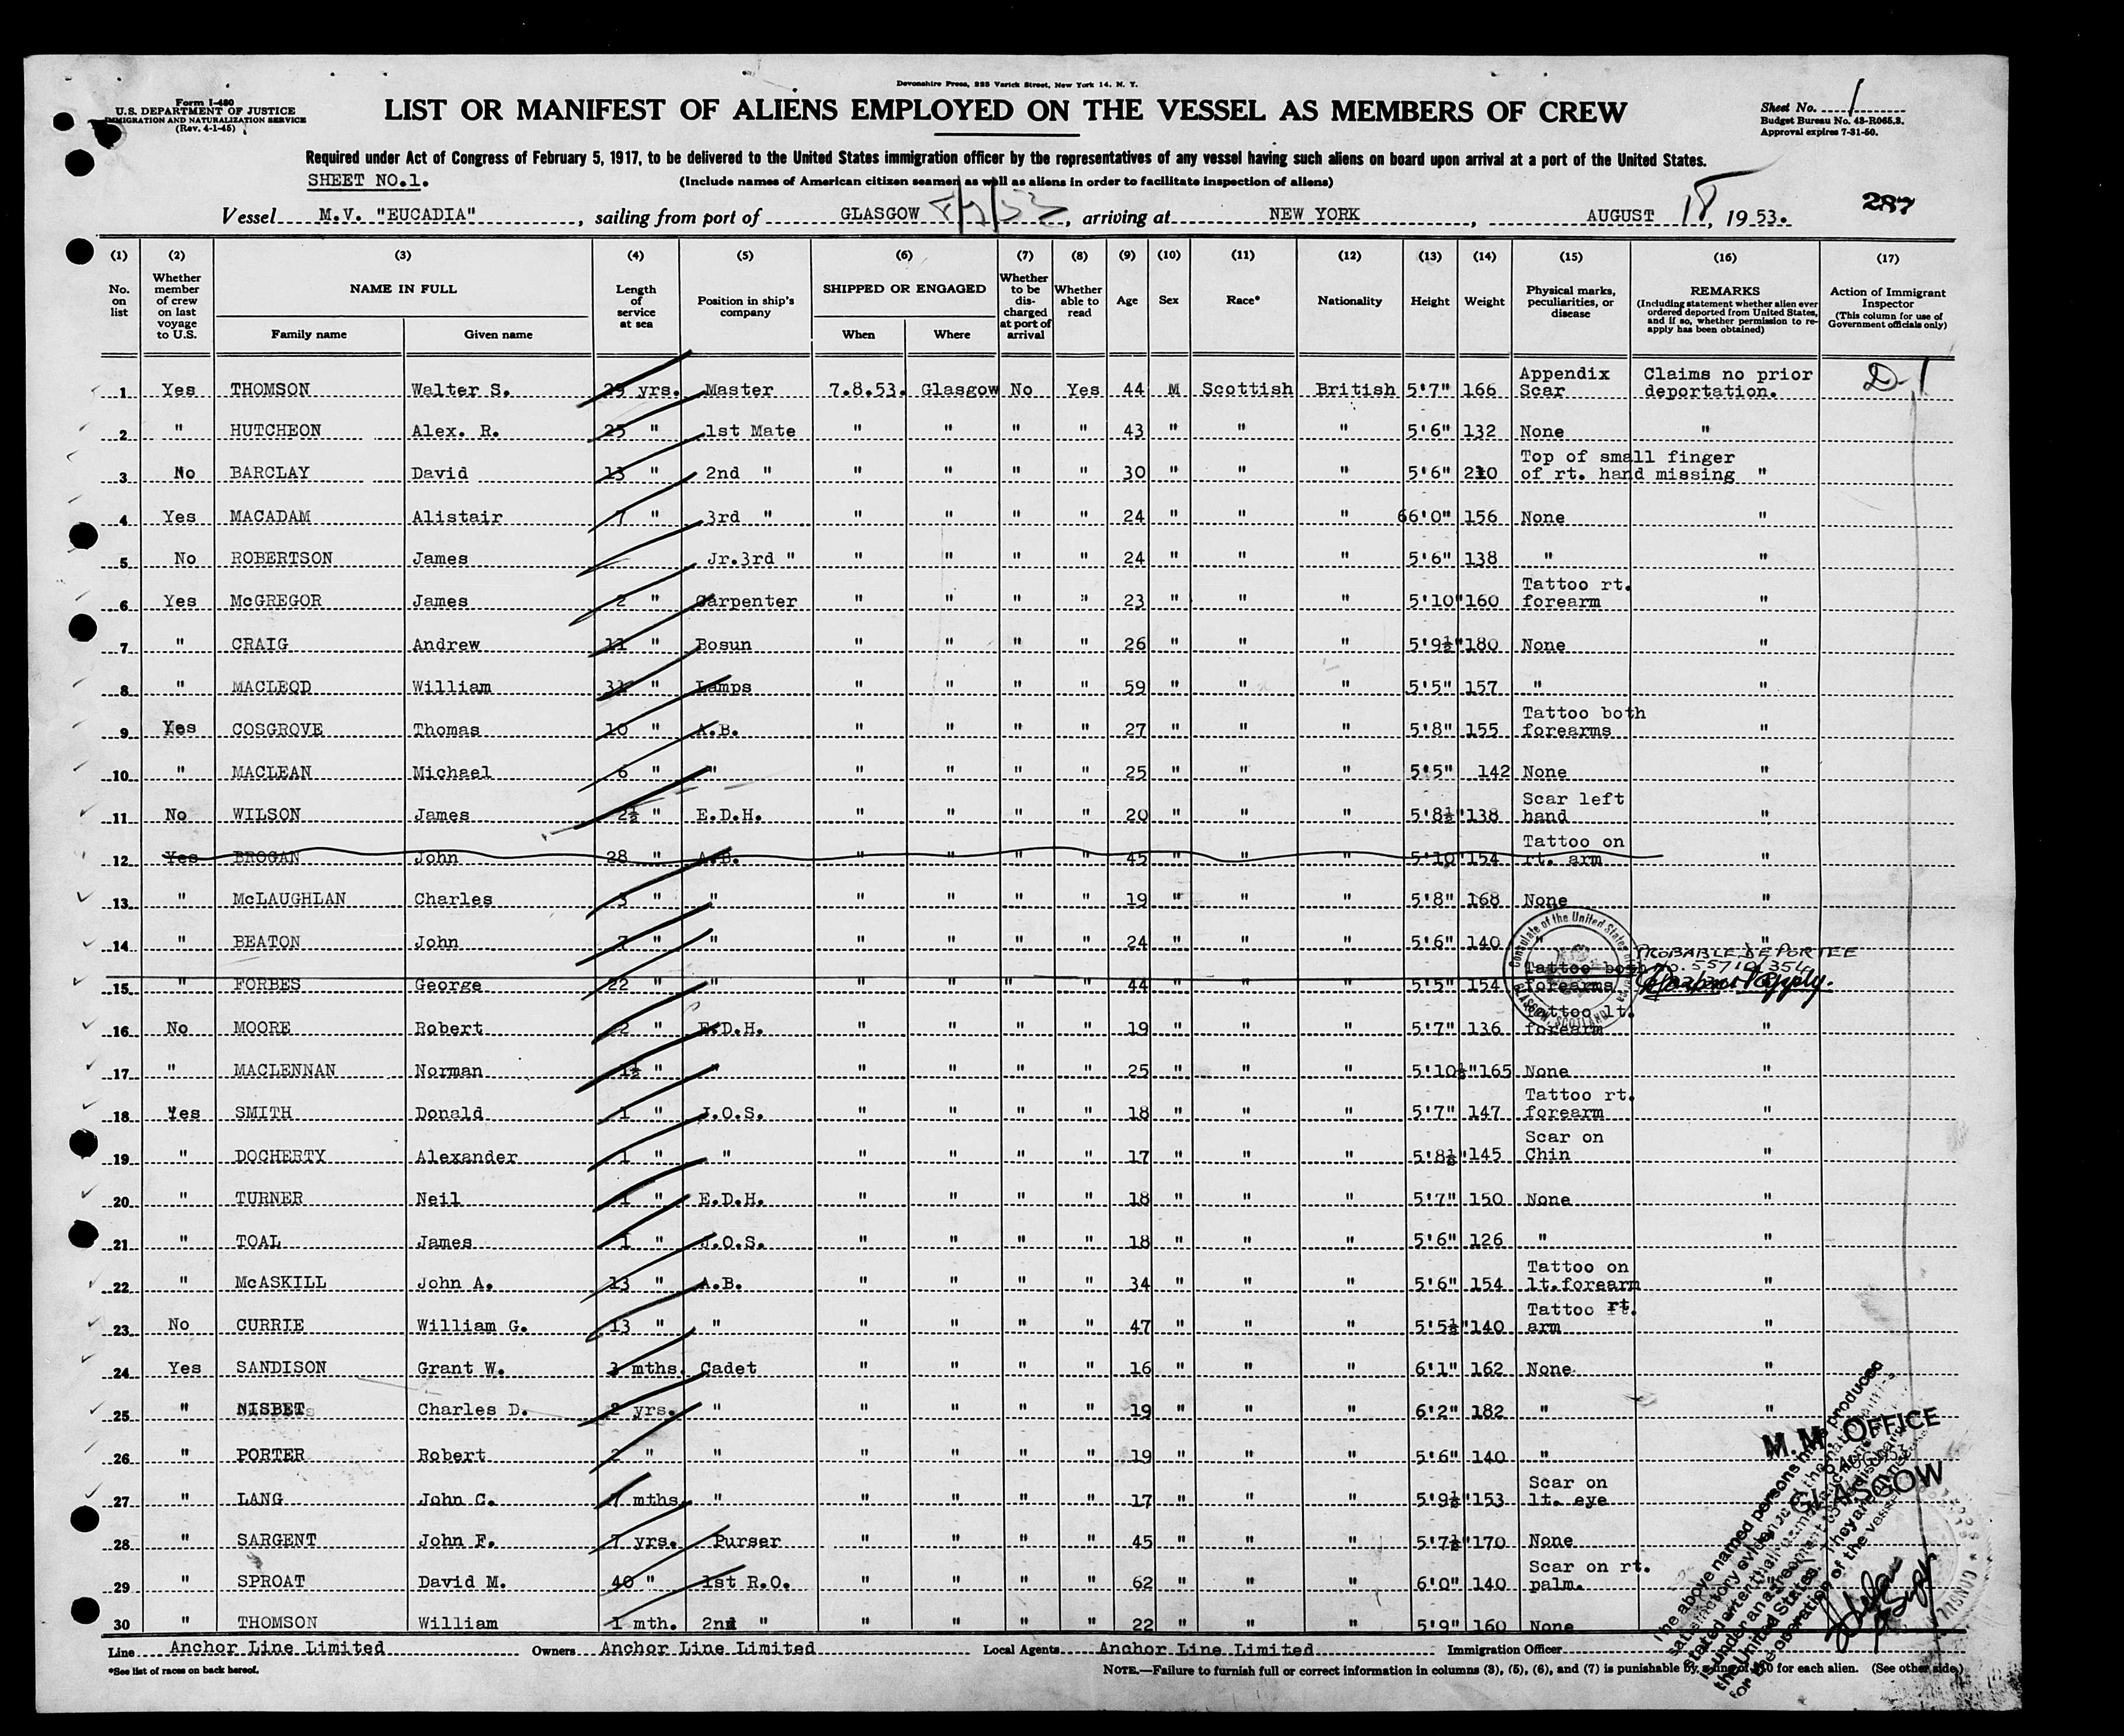 Devonshire Press, 225 Varick Street, New York 14, N. Y.
Form I-480
U.S. DEPARTMENT OF JUSTICE
IMMIGRATION AND NATURALIZATION SERVICE
(Rev. 4-1-45)
LIST OR MANIFEST OF ALIENS EMPLOYED ON THE VESSEL AS MEMBERS OF CREW
Sheet No. 1
Budget Bureau No. 43-R065.2.
Approval expires 7-31-50.
Required under Act of Congress of February 5, 1917, to be delivered to the United States immigration officer by the representatives of any vessel having such aliens on board upon arrival at a port of the United States.
SHEET NO.1.
(Include names of American citizen seamen as well as aliens in order to facilitate inspection of aliens)
287
Vessel M.V. "EUCADIA", sailing from port of GLASGOW, arriving at NEW YORK, AUGUST 18, 1953.
(1) (2) (3) (4) (5) (6) (7) (8) (9) (10) (11) (12) (13) (14) (15) (16) (17)
No. on list | Whether member of crew on last voyage to U.S. | NAME IN FULL Family name Given name | Length of service at sea | Position in ship's company | SHIPPED OR ENGAGED When Where | Whether to be discharged at port of arrival | Whether able to read | Age | Sex | Race* | Nationality | Height | Weight | Physical marks, peculiarities, or disease | REMARKS (Including statement whether alien ever ordered deported from United States, and if so, whether permission to re-apply has been obtained) | Action of Immigrant Inspector (This column for use of Government officials only)
1 Yes THOMSON Walter S. 29 yrs. Master 7.8.53. Glasgow No Yes 44 M Scottish British 5'7" 166 Appendix Scar Claims no prior deportation. D-1
2 " HUTCHEON Alex. R. 25 " 1st Mate " " " " 43 " " " 5'6" 132 None "
3 No BARCLAY David 13 " 2nd " " " " " 30 " " " 5'6" 210 Top of small finger of rt. hand missing "
4 Yes MACADAM Alistair 7 " 3rd " " " " " 24 " " " 66'0" 156 None "
5 No ROBERTSON James Jr.3rd " " " " " 24 " " " 5'6" 138 " "
6 Yes McGREGOR James 2 " Carpenter " " " " 23 " " " 5'10" 160 Tattoo rt. forearm "
7 " CRAIG Andrew 11 " Bosun " " " " 26 " " " 5'9½" 180 None "
8 " MACLEOD William 31 " Lamps " " " " 59 " " " 5'5" 157 " "
9 Yes COSGROVE Thomas 10 " A.B. " " " " 27 " " " 5'8" 155 Tattoo both forearms "
10 " MACLEAN Michael 6 " " " " " " 25 " " " 5'5" 142 None "
11 No WILSON James 2½ " E.D.H. " " " " 20 " " " 5'8½" 138 Scar left hand "
12 Yes BROGAN John 28 " A.B. " " " " 45 " " " 5'10" 154 Tattoo on rt. arm "
13 " McLAUGHLAN Charles 3 " " " " " " 19 " " " 5'8" 168 None "
14 " BEATON John 7 " " " " " " 24 " " " 5'6" 140 " "
Consulate of the United States
GLASGOW, SCOTLAND
PROBABLE DEPORTEE
15 " FORBES George 22 " " " " " " 44 " " " 5'5" 154 Tattoo both forearms
16 No MOORE Robert 22 " E.D.H. " " " " 19 " " " 5'7" 136 Tattoo lt. forearm "
17 " MACLENNAN Norman 1½ " " " " " " 25 " " " 5'10½" 165 None "
18 Yes SMITH Donald 1 " J.O.S. " " " " 18 " " " 5'7" 147 Tattoo rt. forearm "
19 " DOCHERTY Alexander 1 " " " " " " 17 " " " 5'8½" 145 Scar on Chin "
20 " TURNER Neil 1 " E.D.H. " " " " 18 " " " 5'7" 150 None "
21 " TOAL James 1 " J.O.S. " " " " 18 " " " 5'6" 126 " "
22 " McASKILL John A. 13 " A.B. " " " " 34 " " " 5'6" 154 Tattoo on lt.forearm "
23 No CURRIE William G. 13 " " " " " " 47 " " " 5'5½" 140 Tattoo rt. arm "
24 Yes SANDISON Grant W. 3 mths. Cadet " " " " 16 " " " 6'1" 162 None "
25 " NISBET Charles D. 2 yrs. " " " " " 19 " " " 6'2" 182 " "
26 " PORTER Robert 2 " " " " " " 19 " " " 5'6" 140 "
27 " LANG John C. 7 mths. " " " " " 17 " " " 5'9½" 153 Scar on lt. eye
28 " SARGENT John F. 7 yrs. Purser " " " " 45 " " " 5'7½" 170 None
29 " SPROAT David M. 40 " 1st R.O. " " " " 62 " " " 6'0" 140 Scar on rt. palm.
30 " THOMSON William 1 mth. 2nd " " " " " 22 " " " 5'9" 160 None
M.M. OFFICE
GLASGOW
Line Anchor Line Limited Owners Anchor Line Limited Local Agents Anchor Line Limited Immigration Officer
*See list of races on back hereof.
NOTE.—Failure to furnish full or correct information in columns (3), (5), (6), and (7) is punishable by a fine of $10 for each alien. (See other side.)